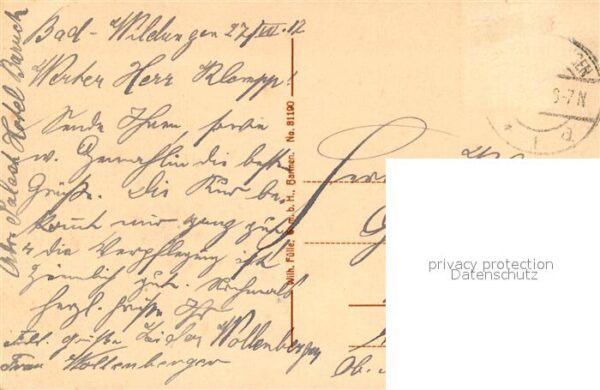 Bad-Wildungen 27/VII. 12
Werter Herr Klompp!
Sende Ihnen, sowie
w. Gemahlin die besten
Grüße. Die Kur be-
kommt mir ganz gut
u die Verpflegung ist
ziemlich gut. Nochmals
herzl. Grüße Ihr
Wollenberger
Frau Wollenberger
Palast Hotel Baruch
Wilh. Fülle, G. m. b. H., Barmen. No. 81190
8-7N
privacy protection
Datenschutz